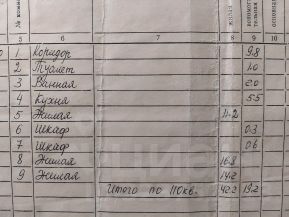 № комн
жилая
основная
5 6 7 8 9 10
1 Коридор 9.8
2 Туалет 1.0
3 Ванная 2.0
4 Кухня 5.5
5 Жилая 11.2
6 Шкаф 0.3
7 Шкаф 0.6
8 Жилая 16.8
9 Жилая 14.2
Итого по 110кв. 42.2 19.2